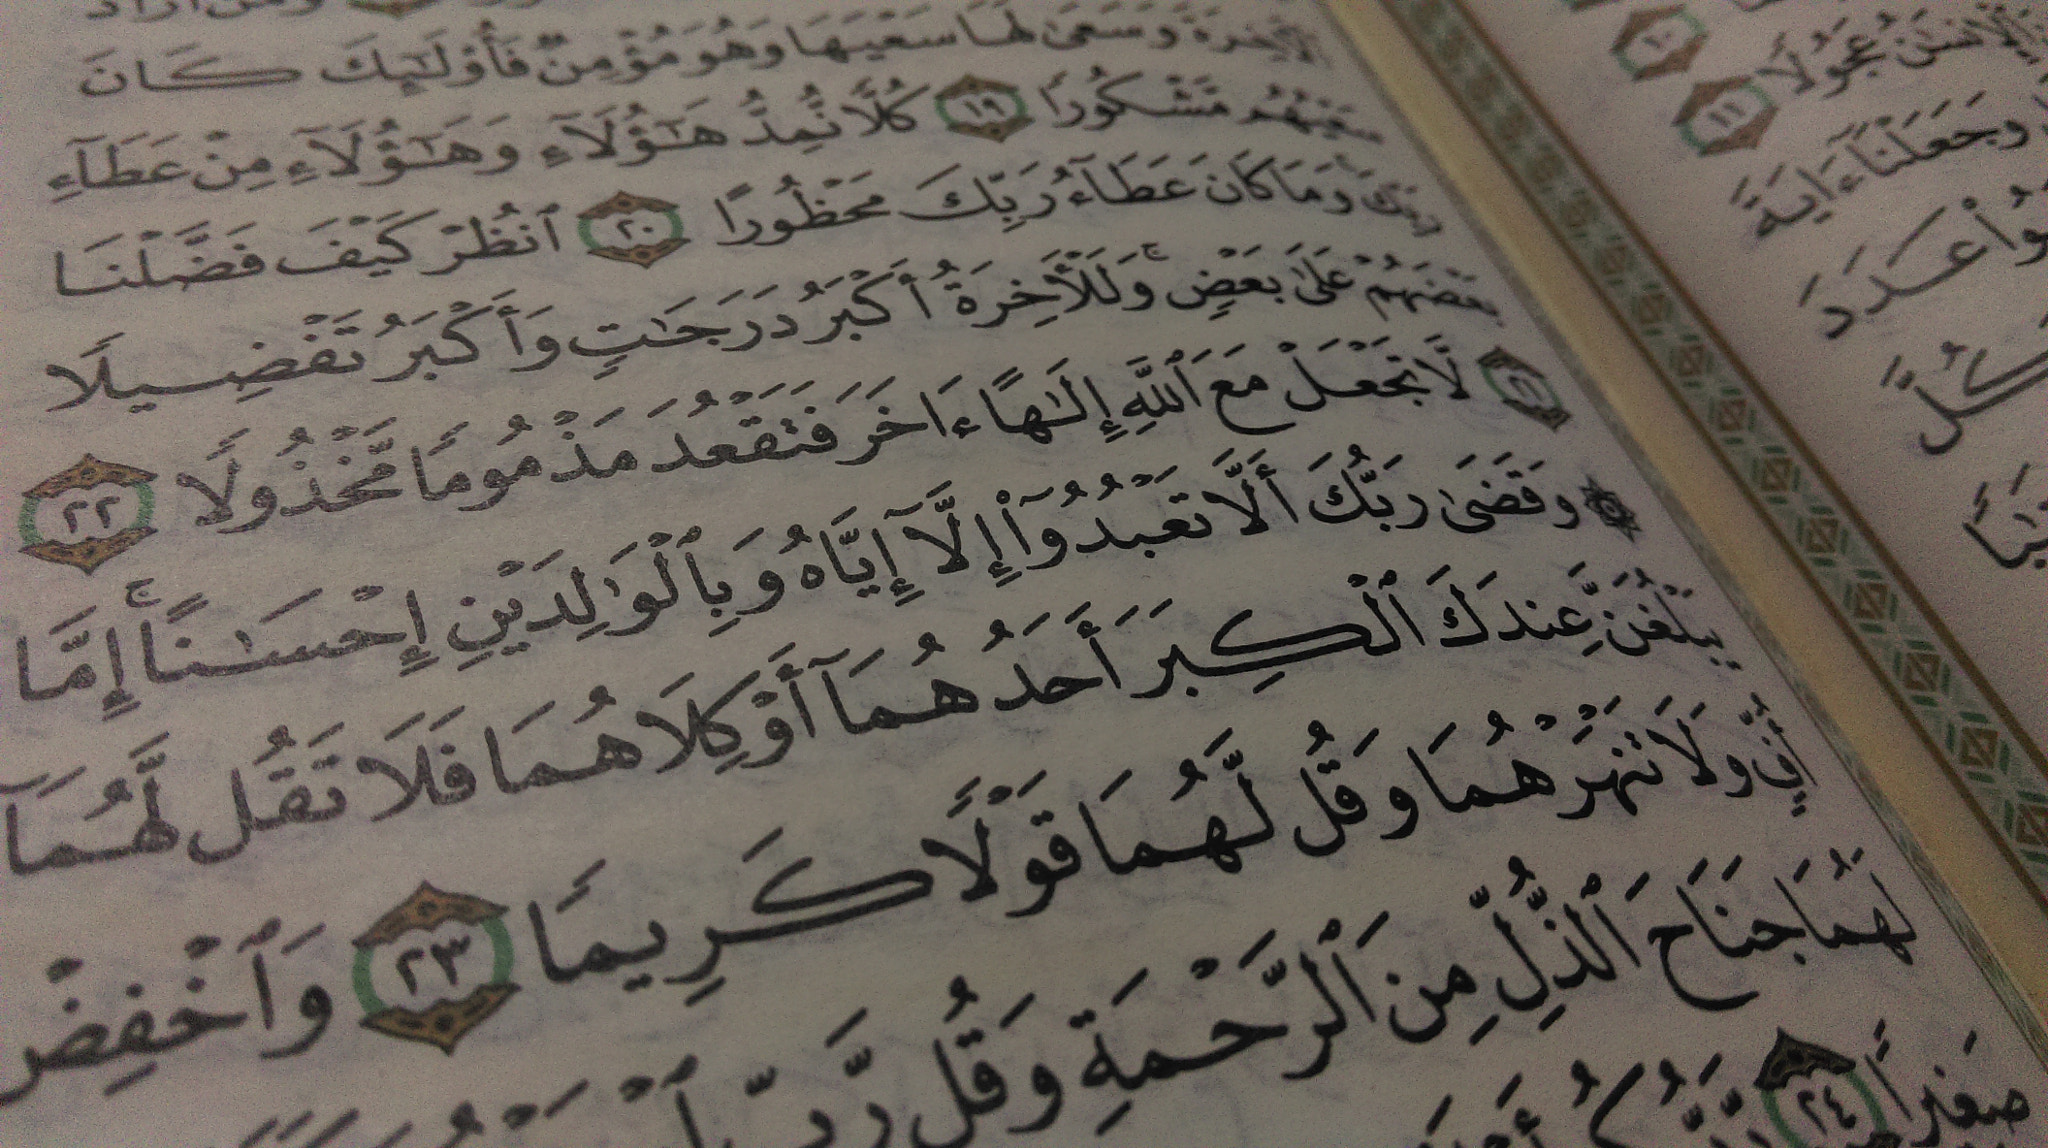 ٱلۡأٓخِرَةَ وَسَعَىٰ لَهَا سَعۡيَهَا وَهُوَ مُؤۡمِنٞ فَأُوْلَٰٓئِكَ كَانَ
سَعۡيُهُم مَّشۡكُورٗا ١٩ كُلّٗا نُّمِدُّ هَٰٓؤُلَآءِ وَهَٰٓؤُلَآءِ مِنۡ عَطَآءِ
رَبِّكَۚ وَمَا كَانَ عَطَآءُ رَبِّكَ مَحۡظُورًا ٢٠ ٱنظُرۡ كَيۡفَ فَضَّلۡنَا
بَعۡضَهُمۡ عَلَىٰ بَعۡضٖۚ وَلَلۡأٓخِرَةُ أَكۡبَرُ دَرَجَٰتٖ وَأَكۡبَرُ تَفۡضِيلٗا
٢١ لَّا تَجۡعَلۡ مَعَ ٱللَّهِ إِلَٰهًا ءَاخَرَ فَتَقۡعُدَ مَذۡمُومٗا مَّخۡذُولٗا ٢٢
۞ وَقَضَىٰ رَبُّكَ أَلَّا تَعۡبُدُوٓاْ إِلَّآ إِيَّاهُ وَبِٱلۡوَٰلِدَيۡنِ إِحۡسَٰنًاۚ إِمَّا
يَبۡلُغَنَّ عِندَكَ ٱلۡكِبَرَ أَحَدُهُمَآ أَوۡ كِلَاهُمَا فَلَا تَقُل لَّهُمَآ
أُفّٖ وَلَا تَنۡهَرۡهُمَا وَقُل لَّهُمَا قَوۡلٗا كَرِيمٗا ٢٣ وَٱخۡفِضۡ
لَهُمَا جَنَاحَ ٱلذُّلِّ مِنَ ٱلرَّحۡمَةِ وَقُل رَّبِّ
صَغِيرٗا ٢٤
١٠
ٱلۡإِنسَٰنُ عَجُولٗا ١١
وَجَعَلۡنَآ ءَايَةَ
عَدَدَ
كُلَّ